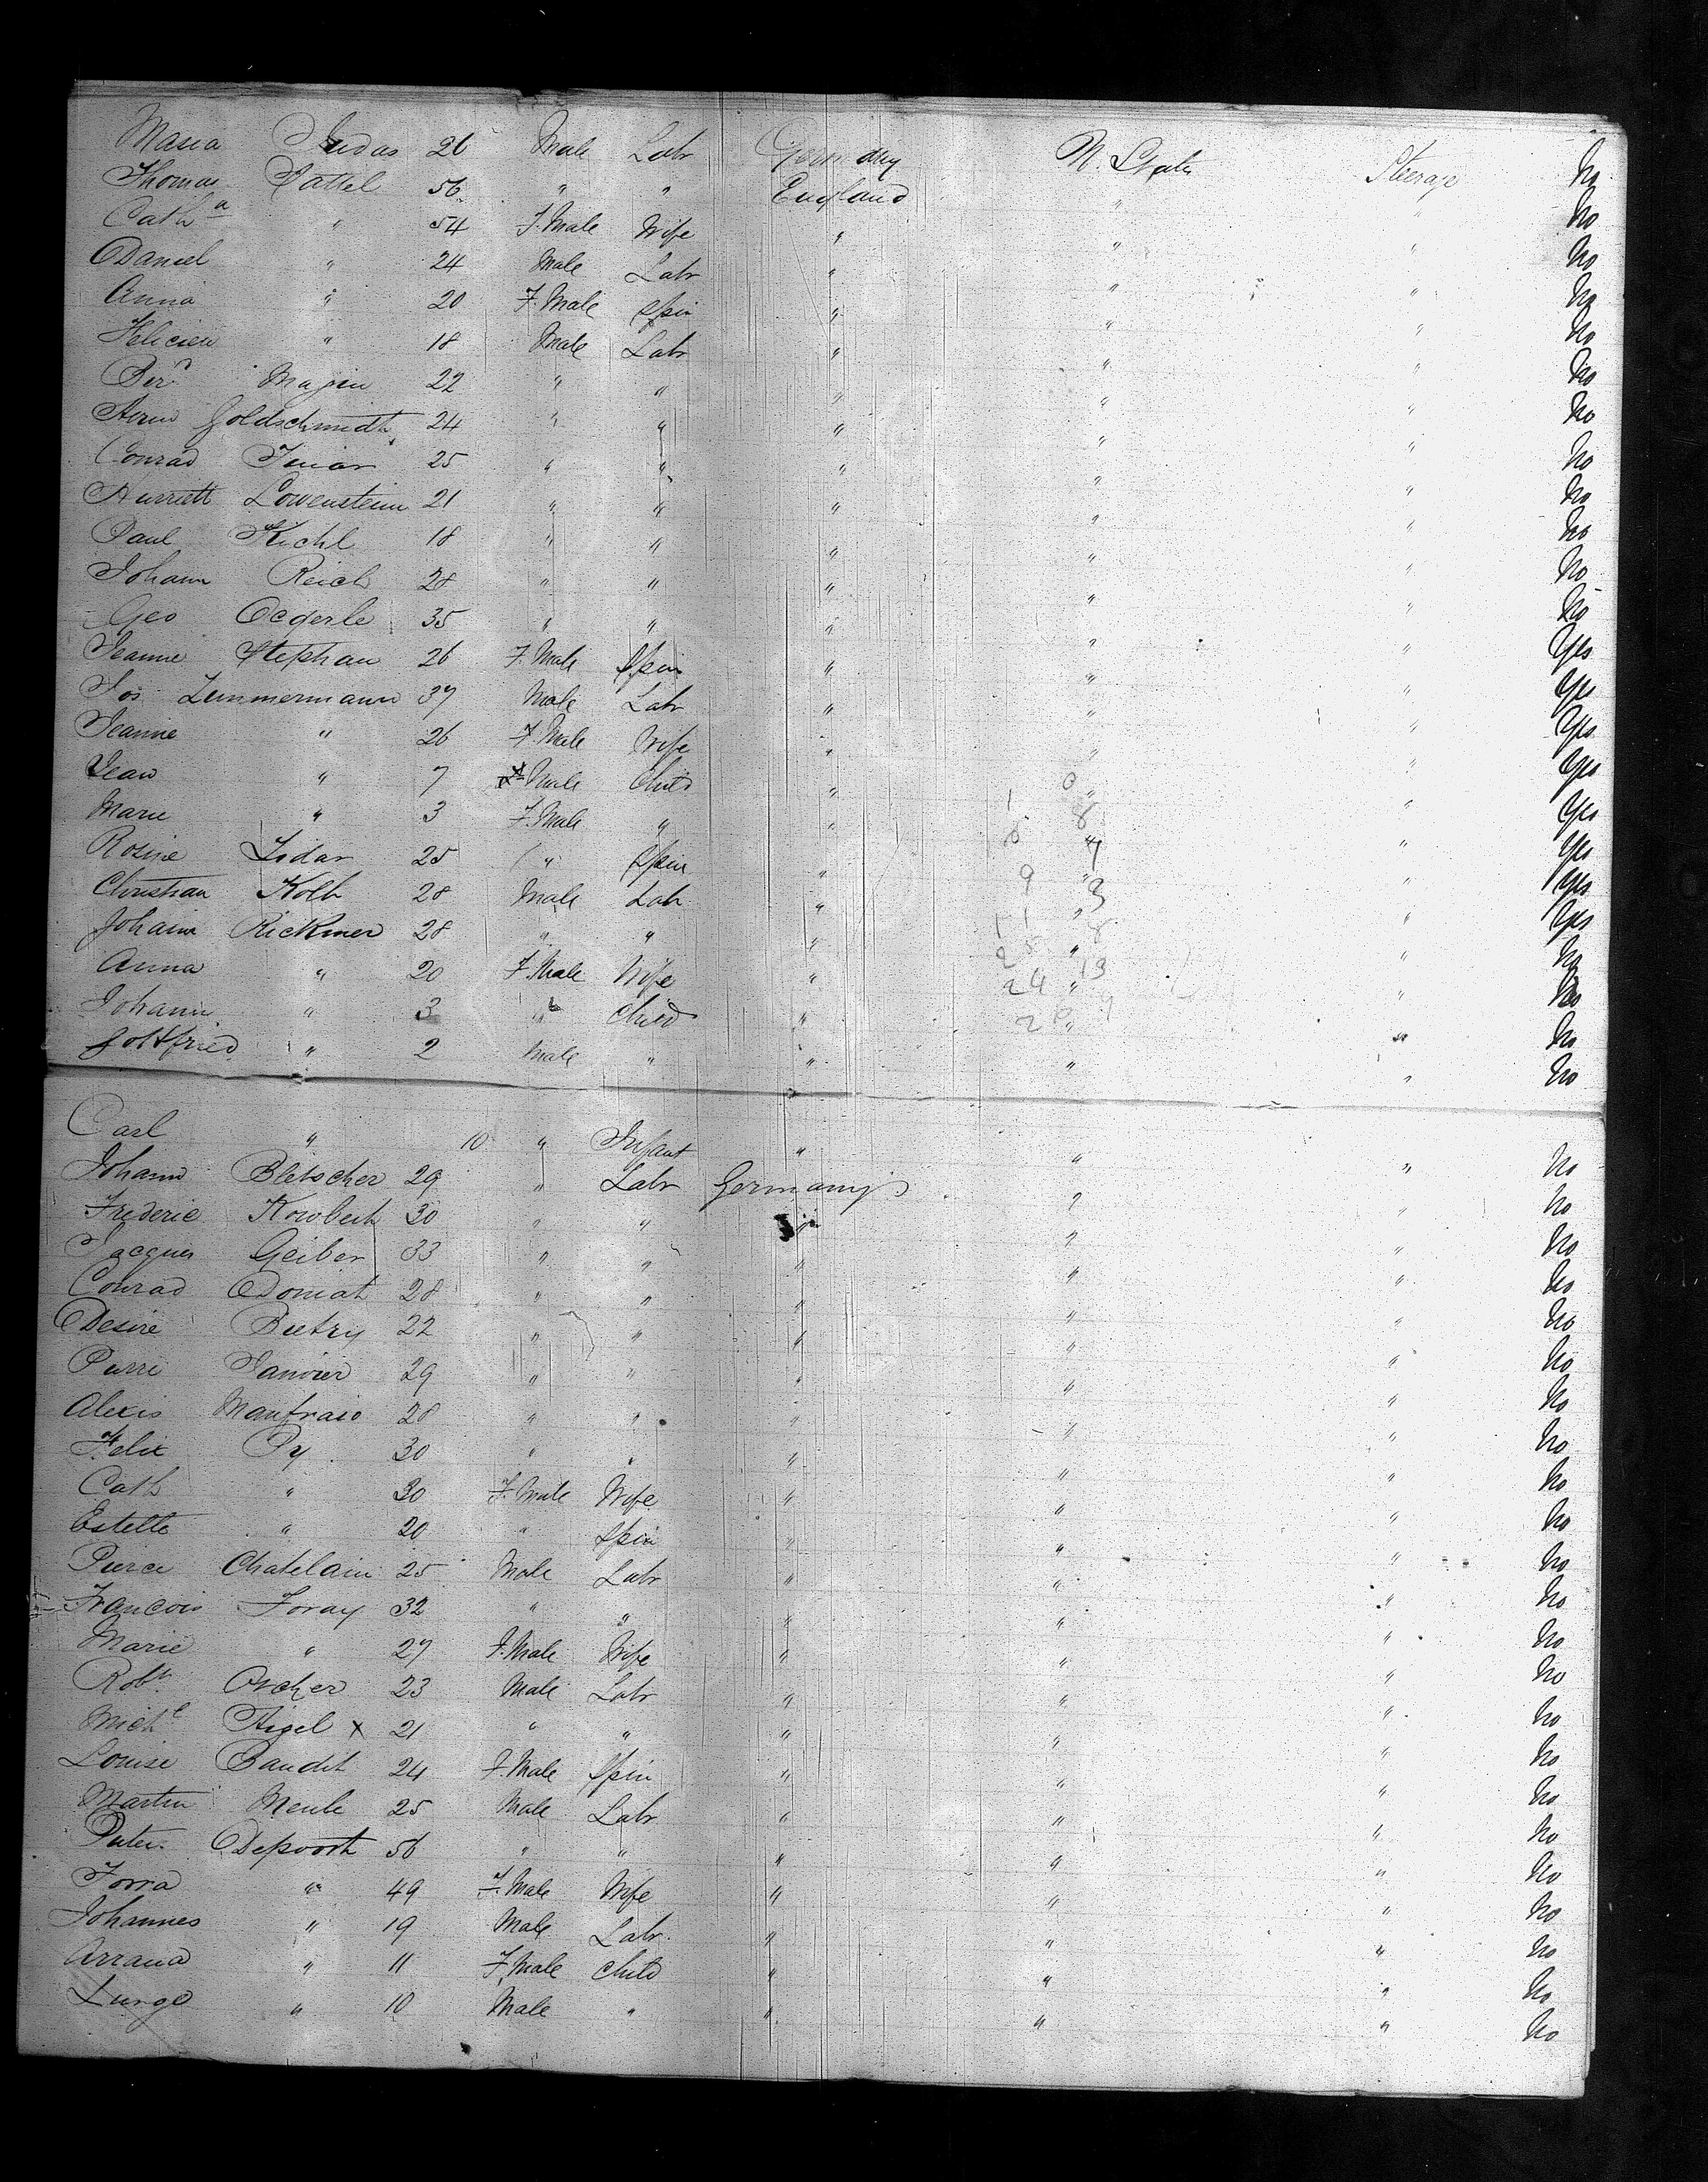 Maria Judas 26 Male Labr Germany U. States Steerage No
Thomas Pattel 56 " " England " " No
Cath a " 54 F. Male Wife " " " No
Daniel " 24 Male Labr " " " No
Anna " 20 F. Male Spin " " " No
Felicien " 18 Male Labr " " " No
Ber Magien 22 " " " " " No
Goldschmidt 24 " " " " " No
Conrad 25 " " " " " No
Lowenstein 21 " " " " " No
Paul Kichl 18 " " " " " No
Johann Reich 28 " " " " " No
Geo Oegerle 35 " " " " " No
Jeanne Stephan 26 F. Male Spin " " " Yes
Jos Zimmermann 37 Male Labr " " " Yes
Jeanne " 26 F. Male Wife " " " Yes
Jean " 7 Male Child " " " Yes
Marie " 3 F. Male " " " " Yes
Rosine Lidar 25 " Spin " " " Yes
Christian Kolb 28 Male Labr " " " Yes
Johann Rickmer 28 " " " " " Yes
Anna " 20 F. Male Wife " " " No
Johann " 3 " Child " " " No
Gottfried " 2 Male " " " " No
Carl " 10 " Infant " " " No
Johann Bletscher 29 " Labr Germany " " No
Frederic Kowbech 30 " " " " " No
Jacques Geiber 33 " " " " " No
Conrad Doniat 28 " " " " " No
Desire Bietry 22 " " " " " No
Pierre Janvier 29 " " " " " No
Alexis Maufrais 28 " " " " " No
Felix Py 30 " " " " " No
Cath " 30 F. Male Wife " " " No
Estelle " 20 " Spin " " " No
Pierce Chatelain 25 Male Labr " " " No
Francois Foray 32 " " " " " No
Marie " 27 F. Male Wife " " " No
Robt Ascher 23 Male Labr " " " No
Michl Higel x 21 " " " " " No
Louise Baudit 24 F. Male Spin " " " No
Martin Menle 25 Male Labr " " " No
Peter Depoort 56 " " " " " No
Forra " 49 F. Male Wife " " " No
Johannes " 19 Male Labr " " " No
Arrana " 11 F. Male Child " " " No
Lurgo " 10 Male " " " " No